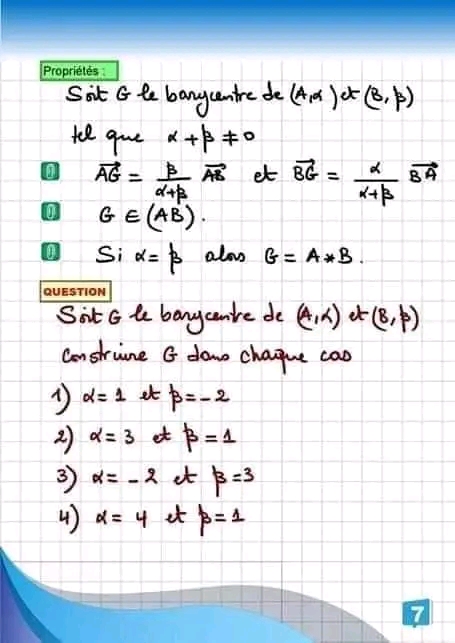 Propriétés :
Soit G le barycentre de (A,α) et (B, β)
tel que α + β ≠ 0
AG⃗ = β/(α+β) AB⃗ et BG⃗ = α/(α+β) BA⃗
G ∈ (AB).
Si α = β alors G = A * B.
QUESTION
Soit G le barycentre de (A,α) et (B, β)
Construire G dans chaque cas
1) α = 1 et β = -2
2) α = 3 et β = 1
3) α = -2 et β = 3
4) α = 4 et β = 1
7